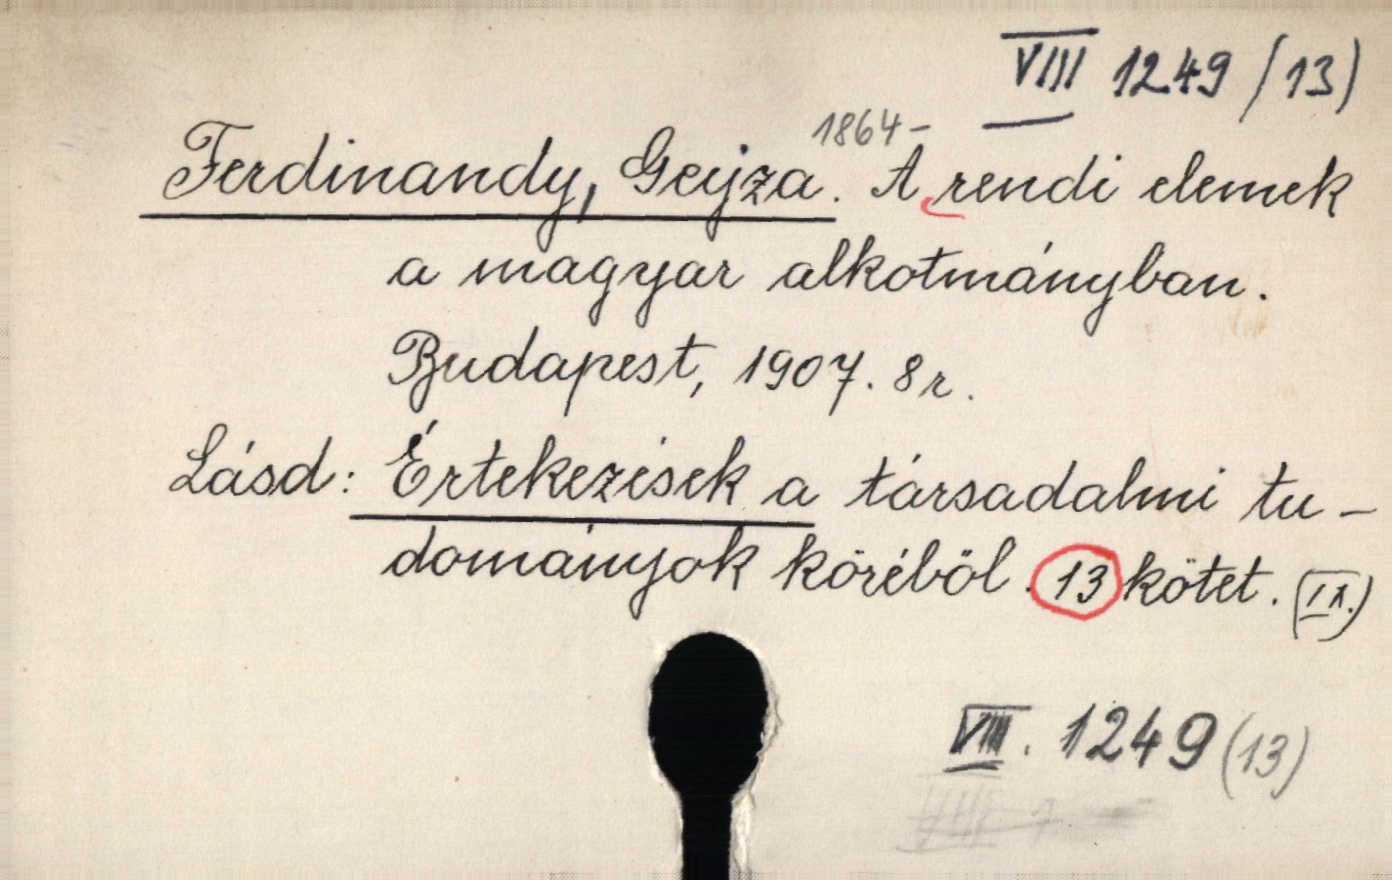 VIII 1249 (13)
1864-
Ferdinandy, Gejza. A rendi elemek
a magyar alkotmányban.
Budapest, 1907. 8r.
Lásd: Értekezések a társadalmi tu-
dományok köréből. 13 kötet. (IX.)
VIII. 1249 (13)